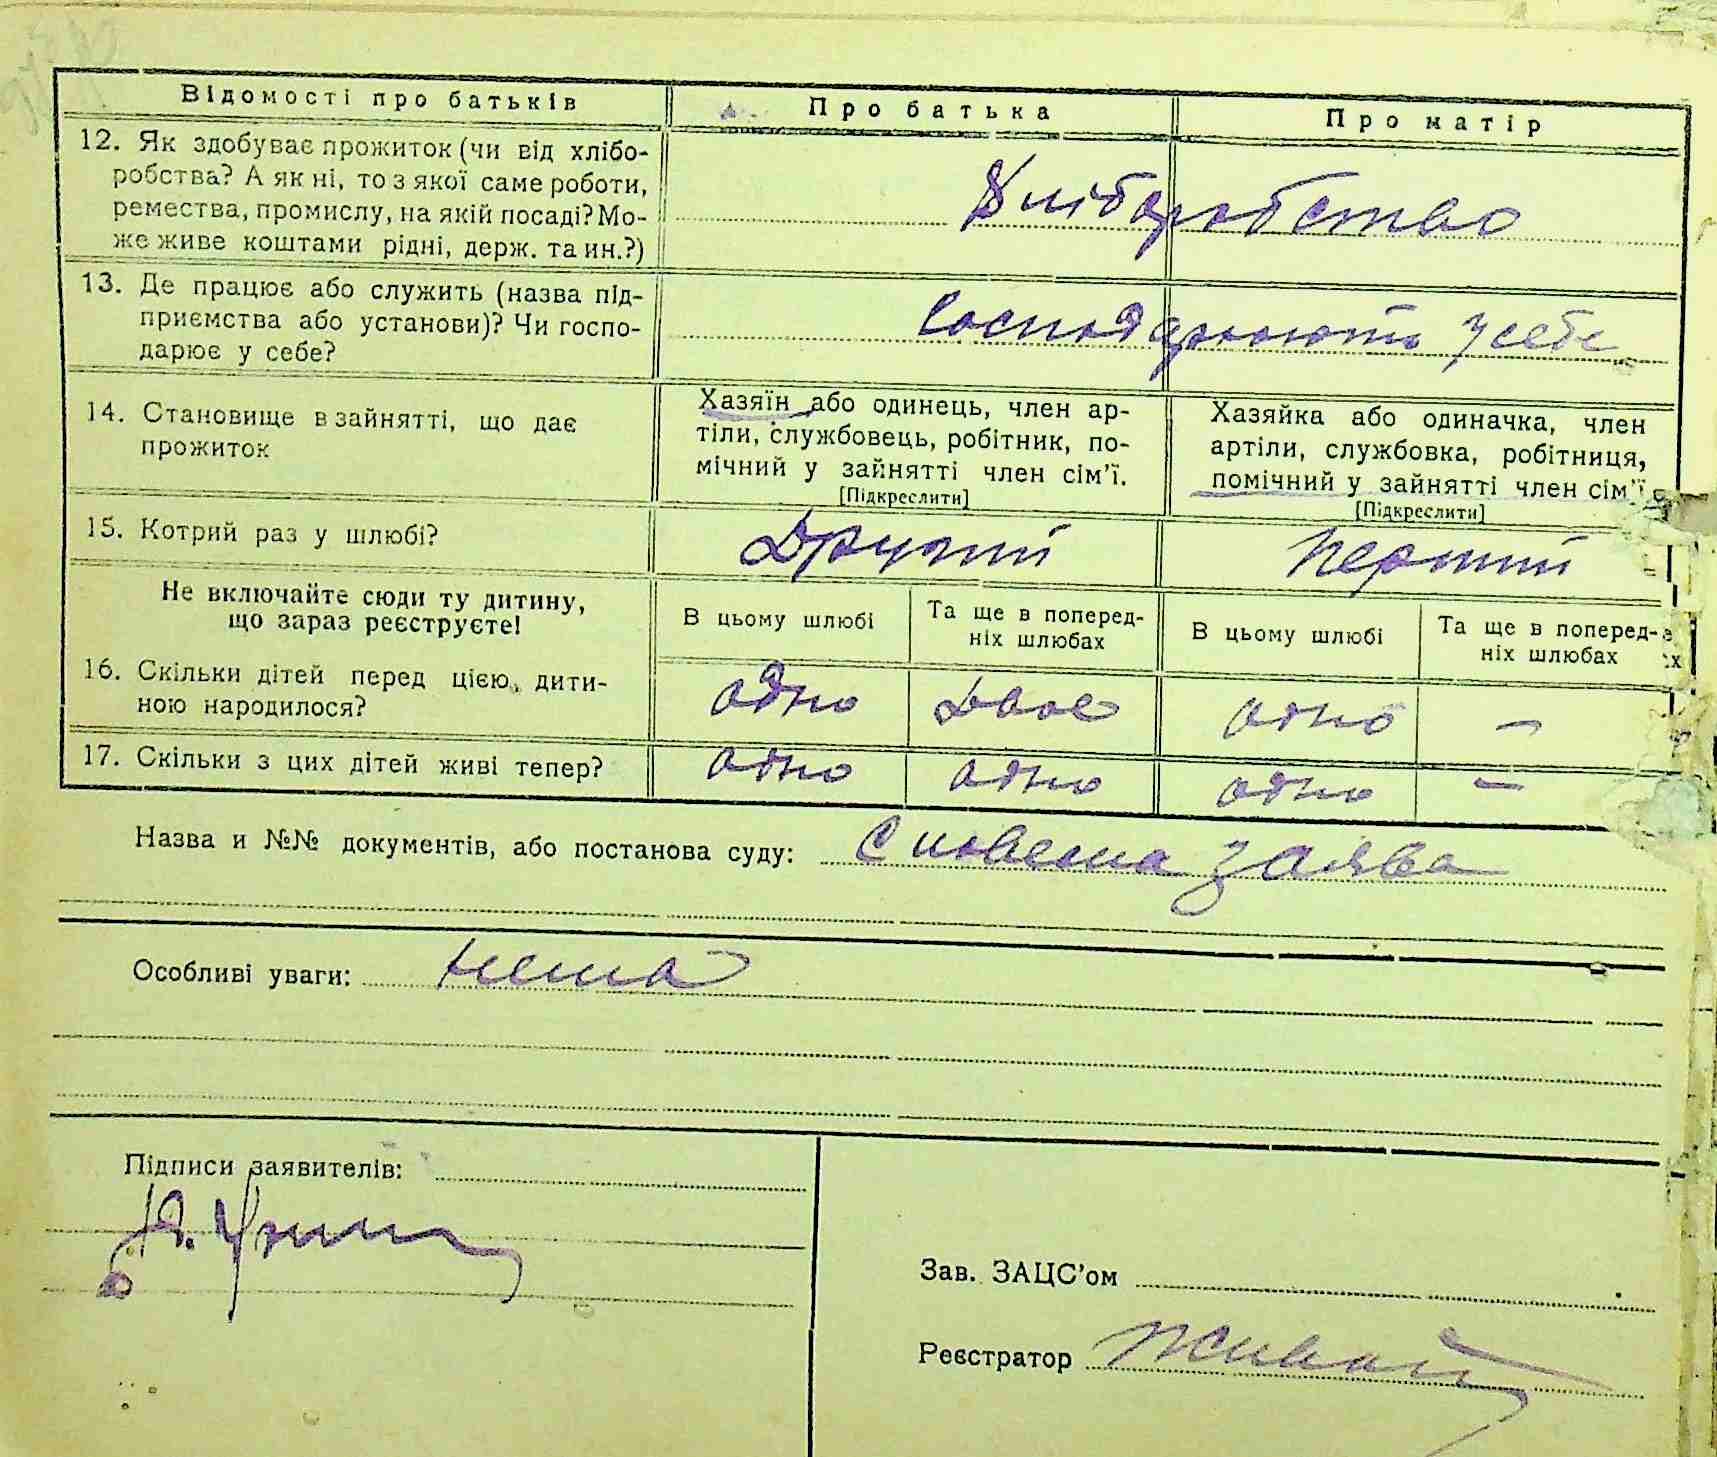 Відомості про батьків Про батька Про матір
12. Як здобуває прожиток (чи від хлібо-
робства? А як ні, то з якої саме роботи,
ремества, промислу, на якій посаді? Мо-
же живе коштами рідні, держ. та ин.?)
Хліборобство
13. Де працює або служить (назва під-
приємства або установи)? Чи госпо-
дарює у себе?
Господарюють у себе
14. Становище в зайнятті, що дає
прожиток
Хазяїн або одинець, член ар-
тіли, службовець, робітник, по-
мічний у зайнятті член сім'ї.
[Підкреслити]
Хазяйка або одиначка, член
артіли, службовка, робітниця,
помічний у зайнятті член сім'ї
[Підкреслити]
15. Котрий раз у шлюбі? Другий Перший
Не включайте сюди ту дитину,
що зараз реєструєте!
В цьому шлюбі
Та ще в поперед-
ніх шлюбах
В цьому шлюбі
Та ще в поперед-
ніх шлюбах
16. Скільки дітей перед цією дити-
ною народилося?
одно двое одно –
17. Скільки з цих дітей живі тепер? одно одно одно –
Назва и №№ документів, або постанова суду: Словесна заява
Особливі уваги: нема
Підписи заявителів:
Зав. ЗАЦС'ом
Реєстратор